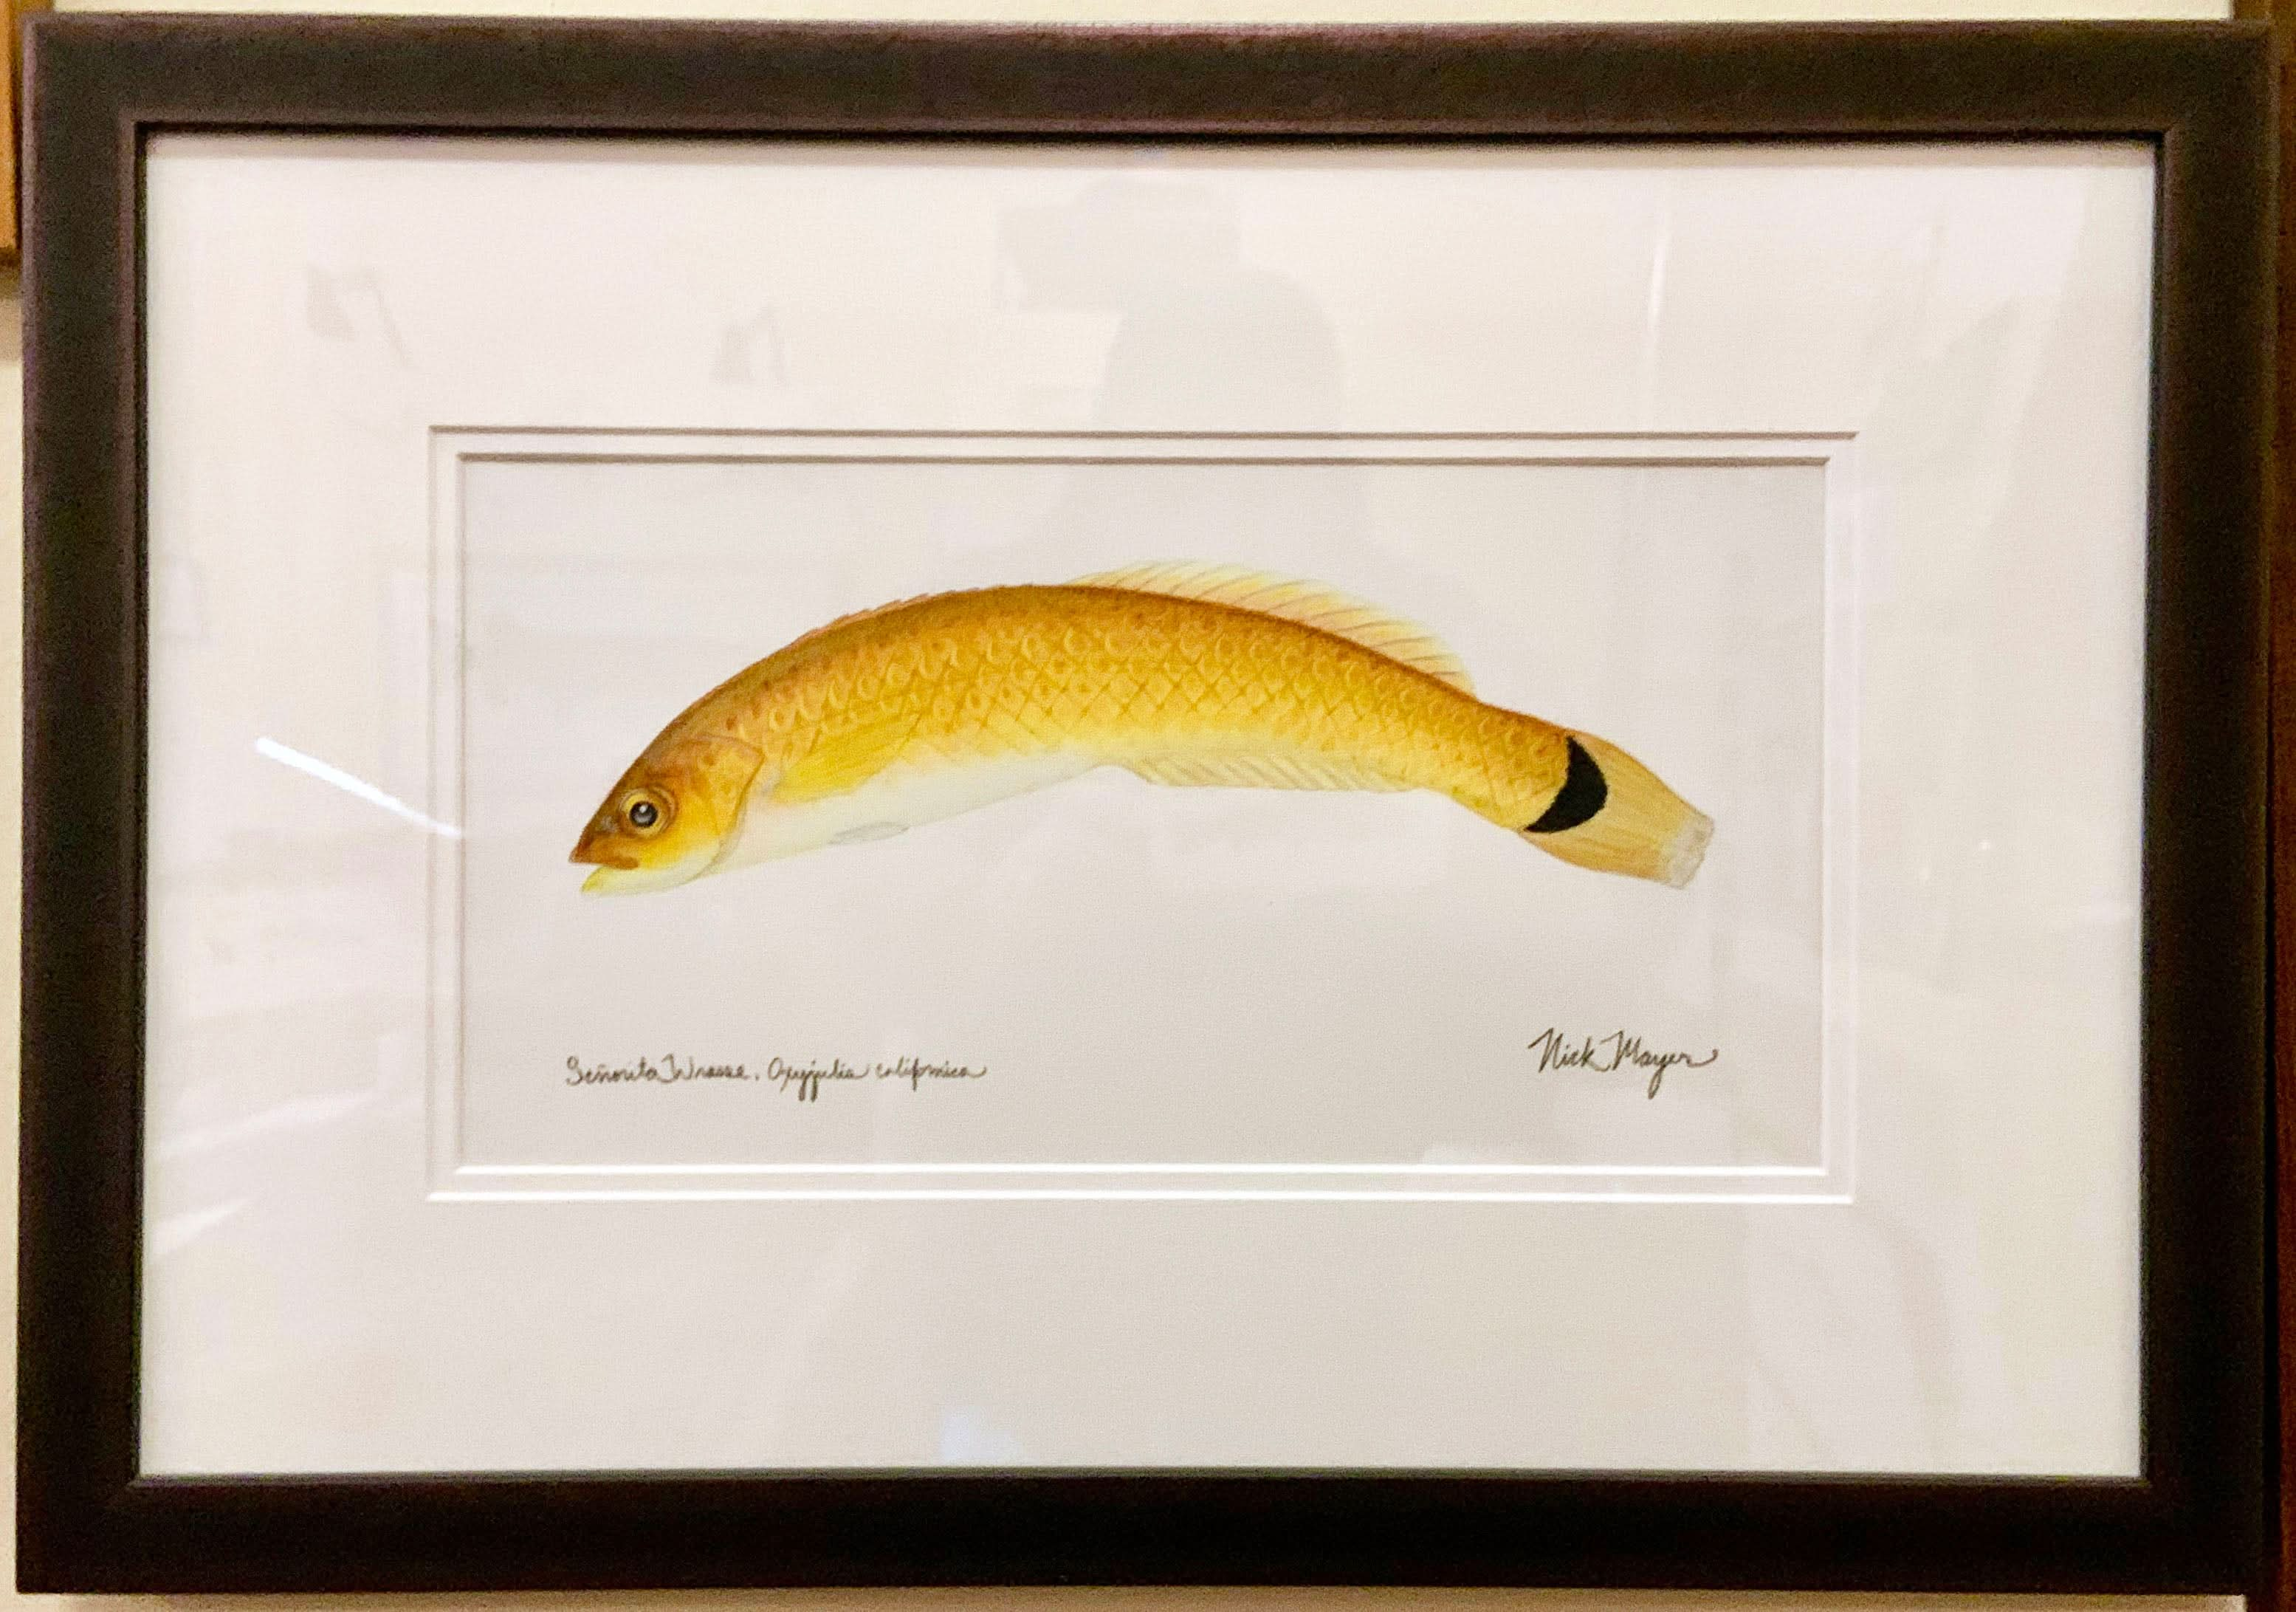 Señorita Wrasse, Oxyjulia californica
Nick Mayer